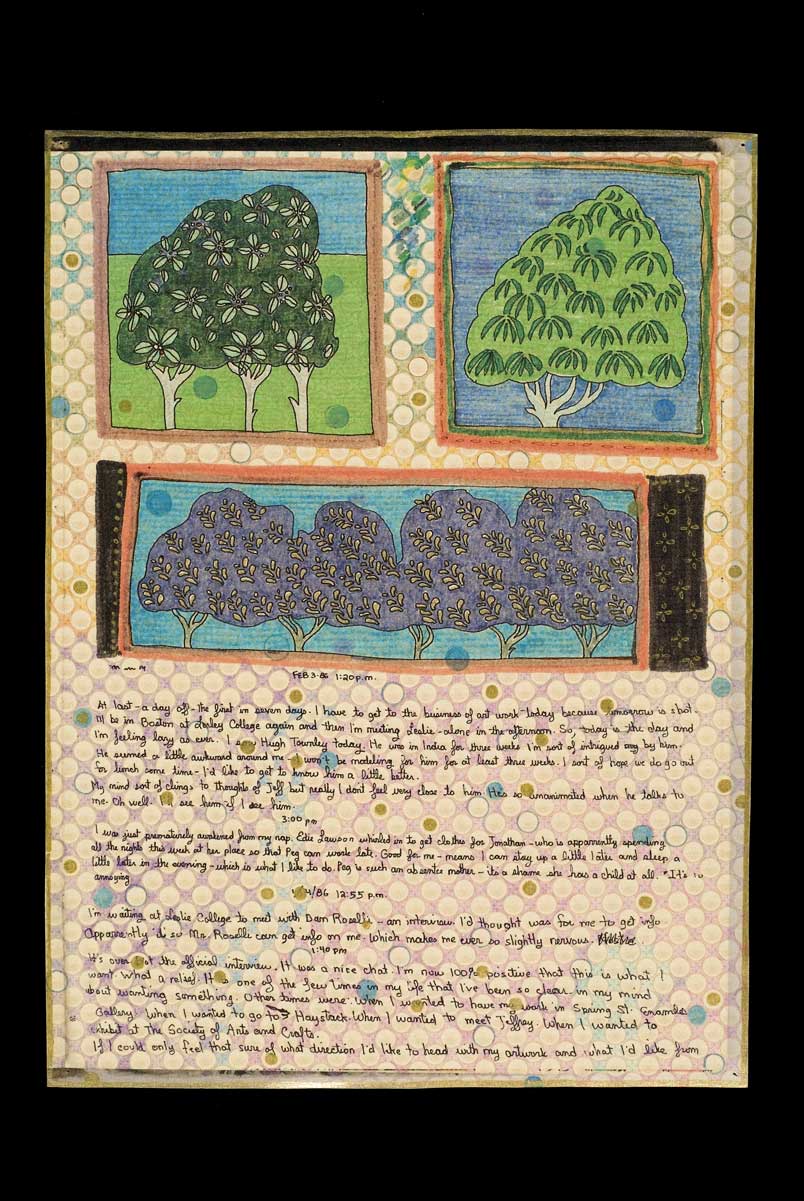 FEB 3-86 1:20 p.m.
At last - a day off - the first in seven days. I have to get to the business of art work today because tomorrow is shot.
I'll be in Boston at Lesley College again and then I'm meeting Leslie - alone in the afternoon. So, today is the day and
I'm feeling lazy as ever. I saw Hugh Townley today. He was in India for three weeks I'm sort of intrigued by him.
He seemed a little awkward around me - I won't be modeling for him for at least three weeks. I sort of hope we do go out
for lunch some time - I'd like to get to know him a little better.
My mind sort of clings to thoughts of Jeff but really I don't feel very close to him He's so unanimated when he talks to
me. Oh well. I'll see him if I see him.
3:00 pm
I was just prematurely awakened from my nap. Edie Lawson whisked in to get clothes for Jonathan - who is apparently spending
all the nights this week at her place so that Peg can work late. Good for me - means I can stay up a little later and sleep a
little later in the evening - which is what I like to do. Peg is such an absentee mother - its a shame she has a child at all. "It's so
annoying
/86 12:55 p.m.
I'm waiting at Leslie College to meet with Dan Roselli - an interview. I'd thought was for me to get info
Apparently so Mr. Roselli can get info on me. Which makes me ever so slightly nervous.
1:40 pm
It's over but the official interview. It was a nice chat. I'm now 100% positive that this is what I
want. What a relief. It is one of the few times in my life that I've been so clear in my mind
about wanting something. Other times were: When I wanted to have my work in Spring St. Enamels
Gallery. When I wanted to go to Haystack. When I wanted to meet Jeffrey. When I wanted to
exhibit at The Society of Arts and Crafts.
If I could only feel that sure of what direction I'd like to head with my artwork and what I'd like from